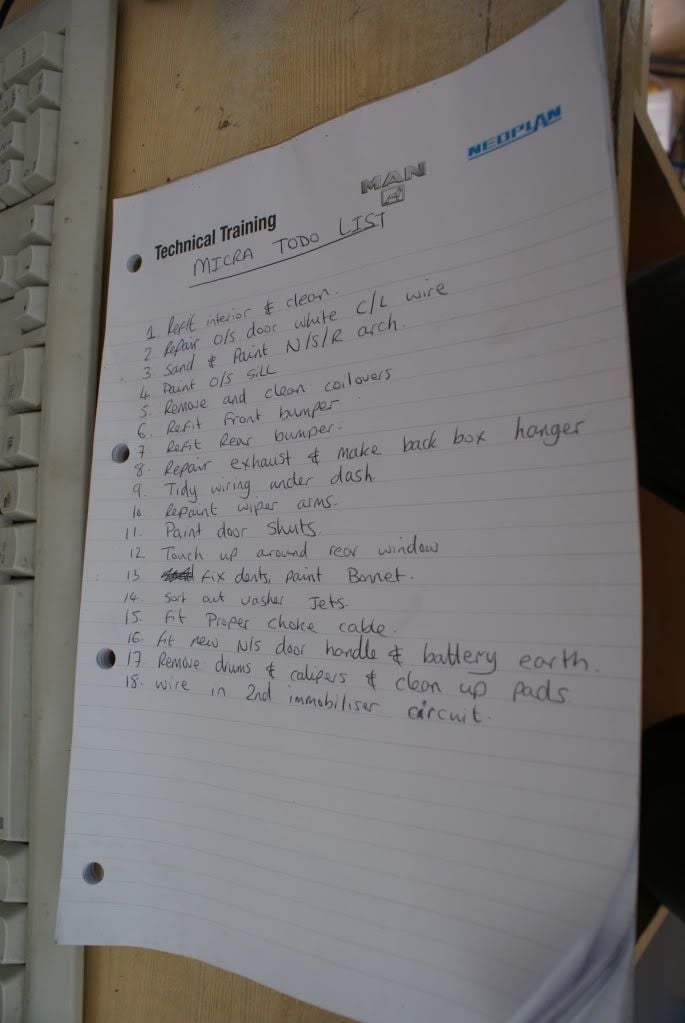 NEOPLAN
MAN
Technical Training
MICRA TODO LIST
1. Refit interior & clean.
2 Repair O/S door white C/L wire
3 Sand & Paint N/S/R arch.
4 Paint O/S Sill
5. Remove and clean coilovers
6. Refit front bumper
7 Refit Rear bumper.
8. Repair exhaust & make back box hanger
9. Tidy wiring under dash
10 Repaint wiper arms.
11. Paint door shuts.
12 Touch up around rear window
13 fix dents, paint Bonnet.
14. Sort out washer Jets.
15. Fit Proper choke cable.
16. fit new N/S door handle & battery earth.
17. Remove drums & calipers & clean up pads
18. wire in 2nd immobiliser circuit.